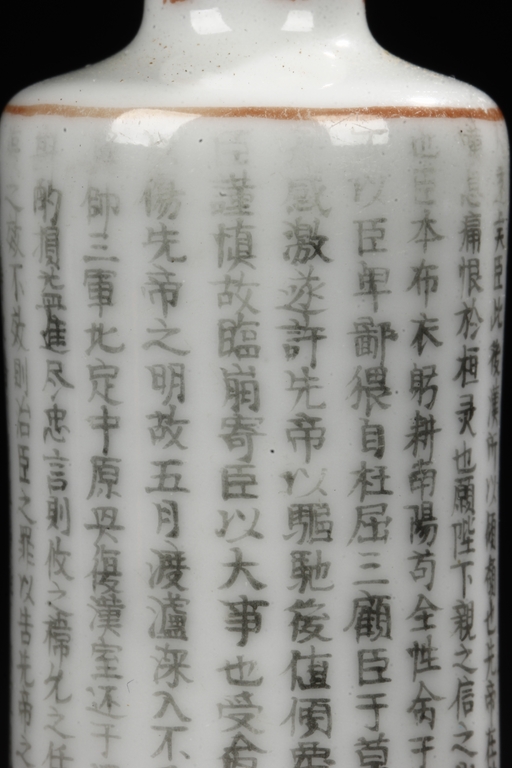 矣臣此後漢所以傾
息痛恨於桓灵也願陛下親之信之
也臣本布衣躬耕南陽苟全性命于
以臣卑鄙猥自枉屈三顧臣于草
感激遂許先帝以驅馳後值傾覆
臣謹慎故臨崩寄臣以大事也受命
傷先帝之明故五月渡瀘深入不
帥三軍北定中原興復漢室还于
的損益進尽忠言則攸之禕允之任
之效不效則治臣之罪以告先帝之